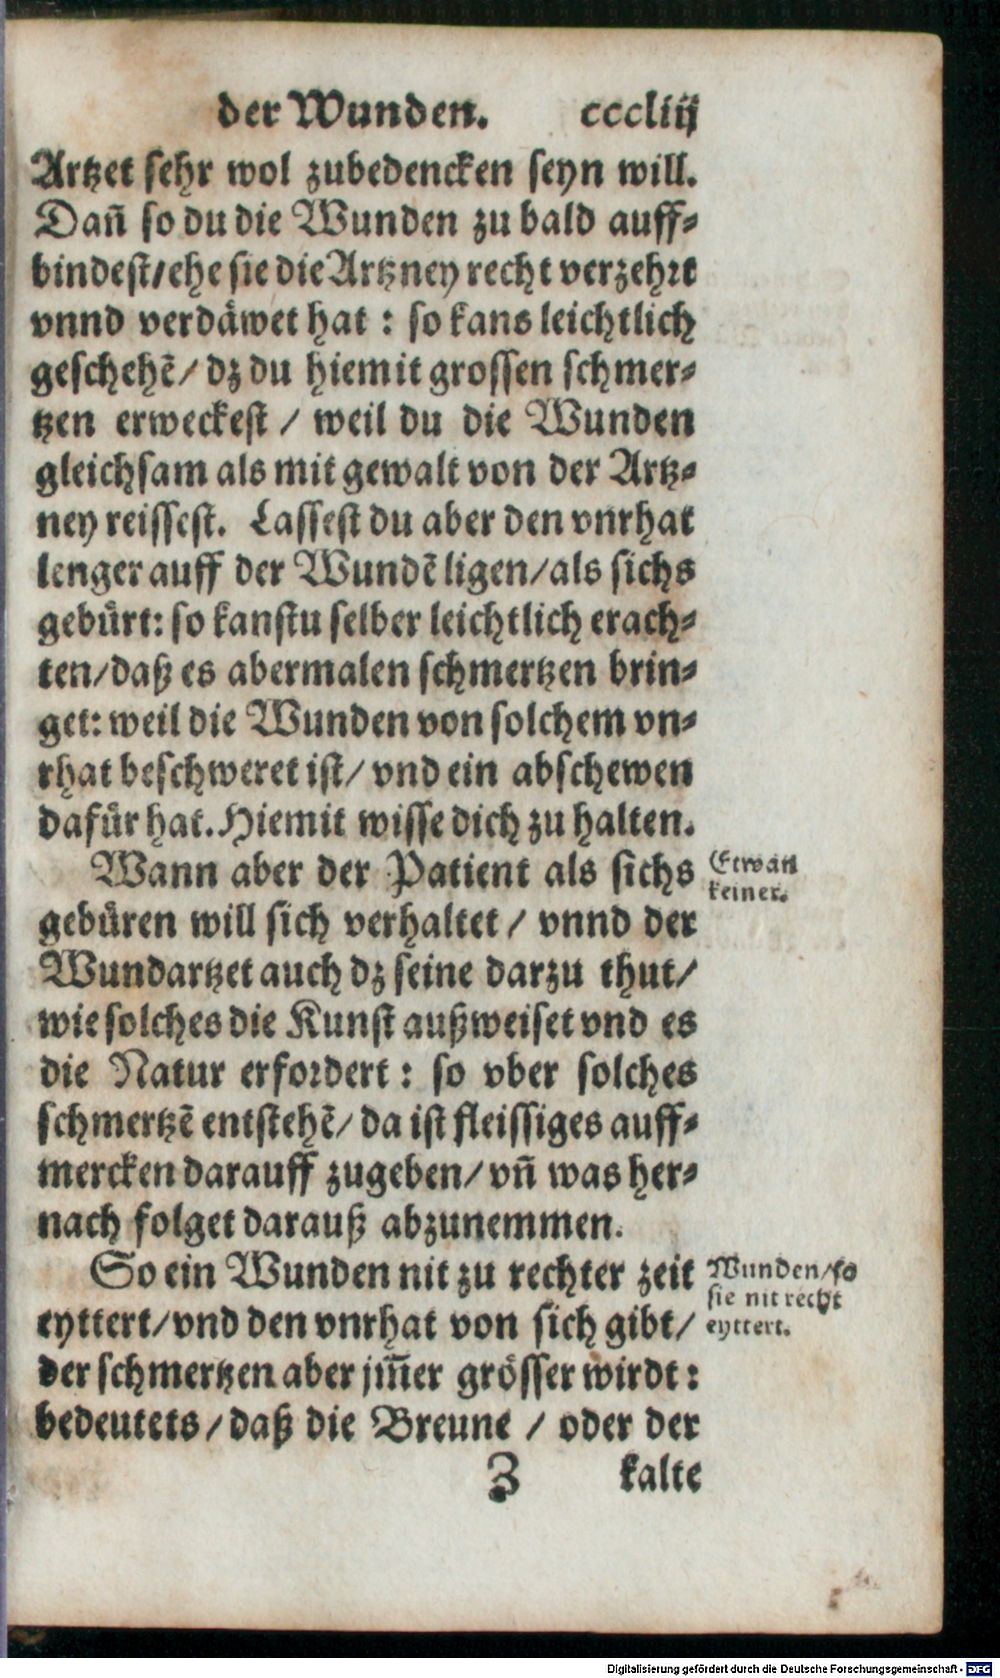 der Wunden. cccliij
Artzet sehr wol zubedencken seyn will.
Dañ so du die Wunden zu bald auff⸗
bindest/ehe sie die Artzney recht verzehrt
vnnd verdäwet hat : so kans leichtlich
geschehẽ/ dz du hiemit grossen schmer⸗
tzen erweckest / weil du die Wunden
gleichsam als mit gewalt von der Artz⸗
ney reissest. Lassest du aber den vnrhat
lenger auff der Wundẽ ligen/als sichs
gebürt: so kanstu selber leichtlich erach⸗
ten/daß es abermalen schmertzen brin⸗
get: weil die Wunden von solchem vn⸗
rhat beschweret ist/ vnd ein abschewen
dafür hat. Hiemit wisse dich zu halten.
Wann aber der Patient als sichs
gebüren will sich verhaltet / vnnd der
Wundartzet auch dz seine darzu thut/
wie solches die Kunst außweiset vnd es
die Natur erfordert : so vber solches
schmertzẽ entstehẽ/ da ist fleissiges auff⸗
mercken darauff zugeben/ vñ was her⸗
nach folget darauß abzunemmen.
Etwañ
keiner.
So ein Wunden nit zu rechter zeit
eyttert/vnd den vnrhat von sich gibt/
der schmertzen aber jm̃er grösser wirdt :
bedeutets/daß die Breune / oder der
Wunden/so
sie nit recht
eyttert.
Z kalte
Digitalisierung gefördert durch die Deutsche Forschungsgemeinschaft - DFG